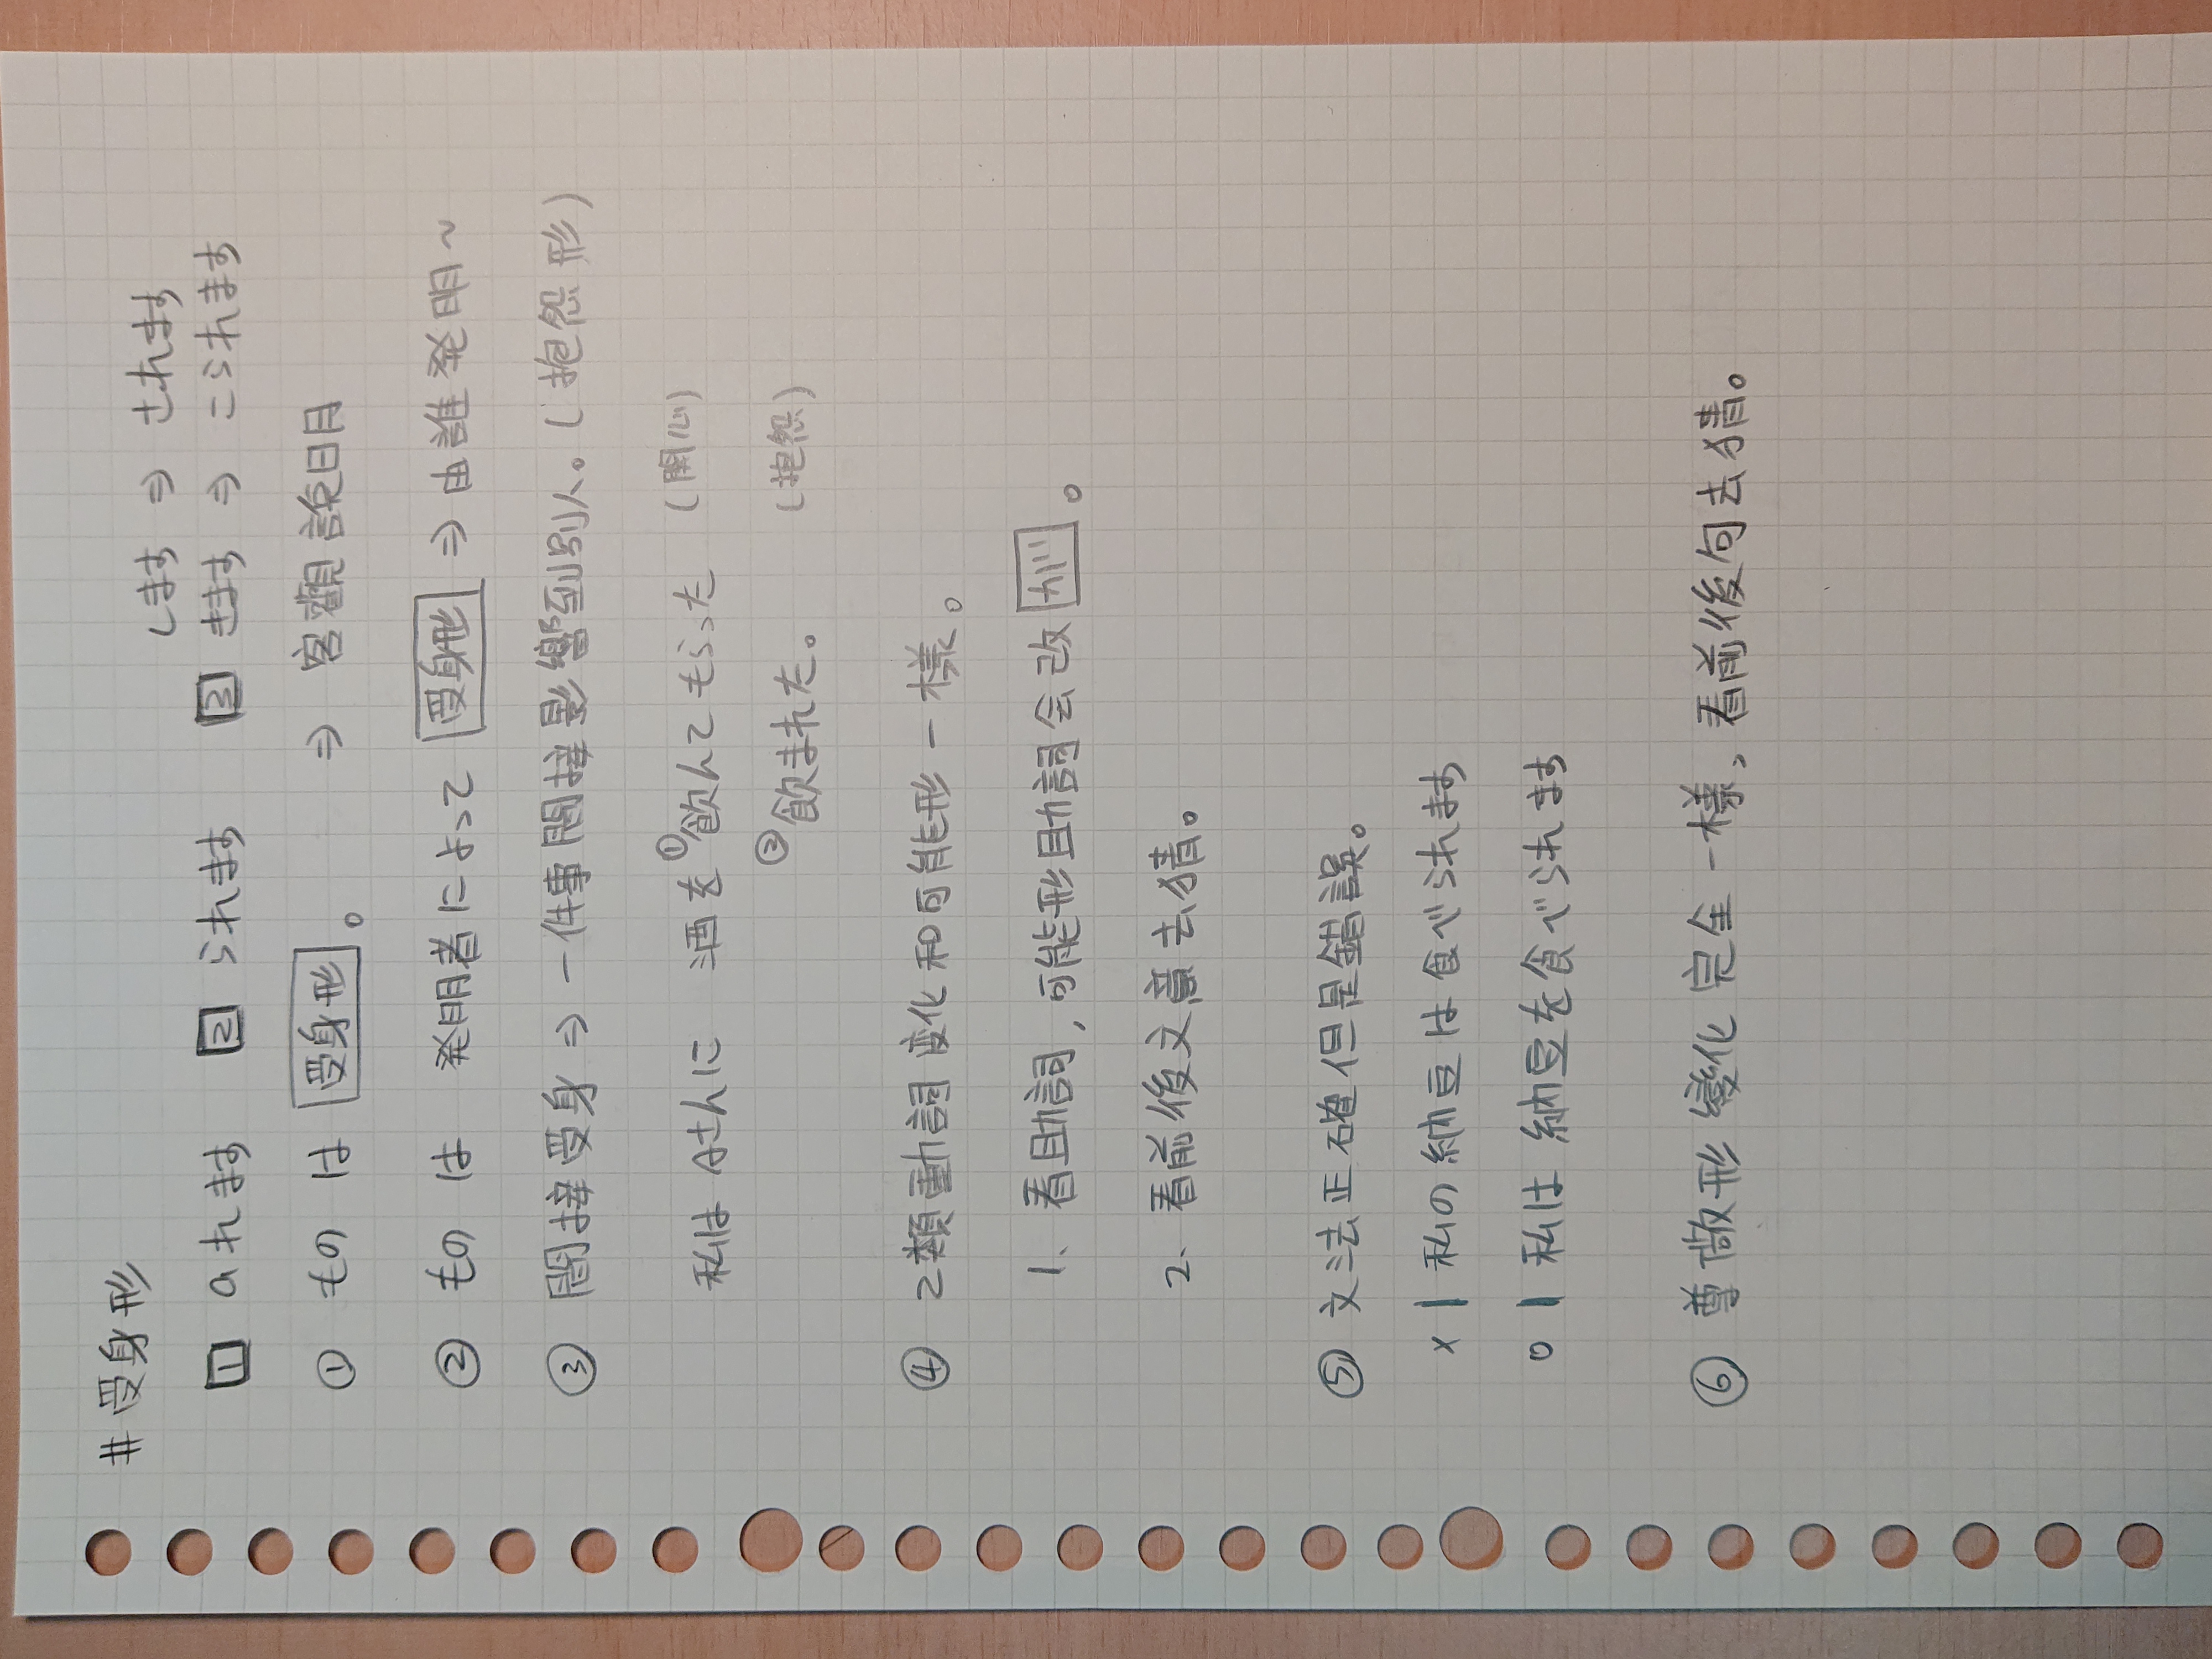 # 受身形
します ⇒ されます
1 aれます 2 られます 3 きます ⇒ こられます
① もの は 受身形。 ⇒ 客觀說明
② もの は 発明者によって 受身形 ⇒ 由誰発明~
③ 間接受身 ⇒ 一件事間接影響到別人。(抱怨形)
私は Aさんに 酒を ①飲んでもらった (開心)
②飲まれた。 (抱怨)
④ 2類動詞变化和可能形一樣。
1. 看助詞,可能形助詞会改 が。
2. 看前後文意去猜。
⑤ 文法正確但是錯誤。
x | 私の納豆は食べられます
o | 私は 納豆を食べられます
⑥ 尊敬形 變化 完全一樣、看前後句去猜。